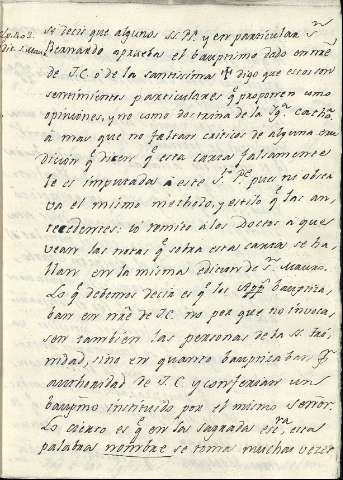 si decir que algunos SS. PP. y en particular Sⁿ
Bernardo aprueba el baup.mo dado en nrẽ
de J.C. ó de la santissima ✝ digo que essos son
sentimientos particulares q̃ proponen como
opiniones, y no como doctrina de la Igª cathca
a mas que no faltan criticos de alguna eru
dicion q̃ dicen q̃ esta carta falsamente
le es imputada a este Sto Pe pues no obser
va el mismo methodo, y estilo q̃ las an
tecedentes: yo remito a los Doctos a que
vean las notas q̃ sobre esta carta se ha
llan en la misma edicion de Sn Mauro.
Lo q̃ debemos decir es q̃ los App baupiza
ban en nrẽ de J.C. no por que no invoca
sen tambien las personas de la SS. Tri
nidad, sino en quanto baupizaban pr
authoridad de J.C. y conferian un
baupmo instituido por el mismo señor.
Lo cierto es q̃ en la sagrada escra, estas
palabras nombre se toma muchas vezes